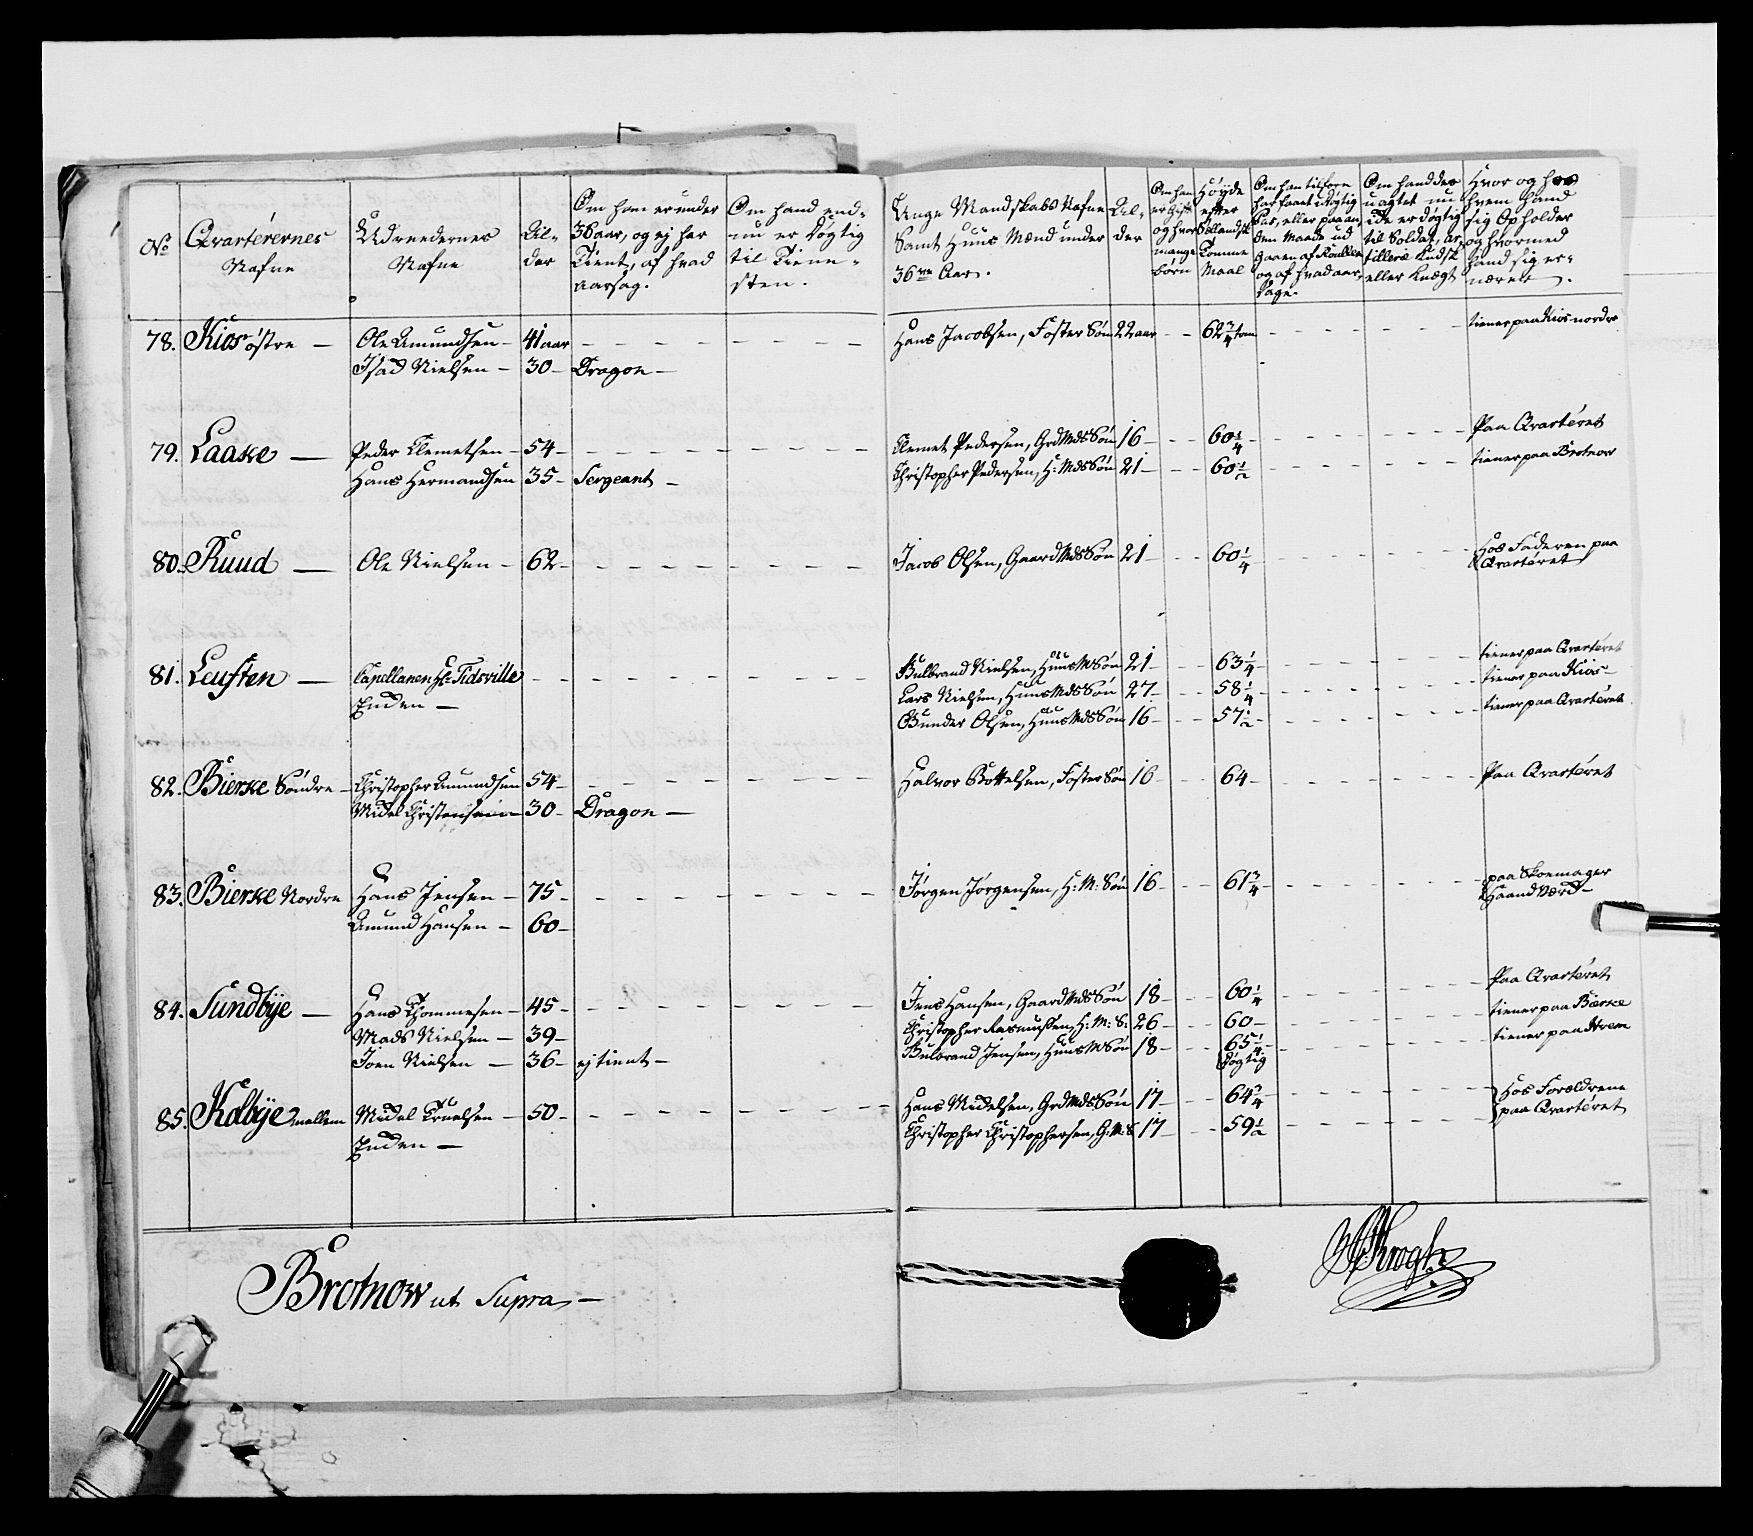 No
Qvarterernes
Nafne
Udreedernes
Nafne
Al-
der
Om ham er under
36 aar, og ej har
tient, af hvad
aarsag.
Om hand end-
nu er Døgtig
til Tiene-
sten.
Unge Mandskabs Nafne
Samt Huus Mænd under
36 te Aar.
Al-
der
Om han
er Gift
og hvor
mange
børn
Høyde
efter
Sellandsk
Tomme
Maal
Om han tilforn
har faaet udøgtig
Pas, eller paa an-
den Maade ud
gaaen af Roullen
og af hvad aar-
sage.
Om hand des
uagtet nu
ikke er døgtig
til Soldat, ar-
tillerie Kudsk
eller Knægt
Hvor og hos
hvem Hand
sig Opholder
og hvormed
hand sig er-
nærer.
78. Kios østre — Ole Amundsen — 41 aar Hans Jacobsen, Foster Søn 22 aar 62 3/4 tom tiener paa Kios nordre
Isach Nielsen — 30 — Dragon —
79. Laake — Peder Clemetsen — 54 — Clemet Pedersen, Grd Mds Søn 16 — 60 1/4 Paa Qvarteret
Hans Hermandsen 35 — Sergeant — Christopher Pedersen, H: Mds Søn 21 — 60 1/2 tiener paa Brotnow
80. Ruud — Ole Nielsen — 62 — Jacob Olsen, Gaard Mds Søn 21 — 60 1/4 Hos Faderen paa
Qvarteret
81. Leuften — Capellanen Hr: Tidsville Gulbrand Nielsen, Huus M Søn 21 — 63 1/4 tiener paa Qvarteret
Enden — Lars Nielsen, Huus Mds Søn 27 — 58 1/4 tiener paa Kios —
Gunder Olsen, Huus Mds Søn 16 — 57 1/2 tiener paa Qvarteret
82. Bierke Søndre — Christopher Amundsen 54 — Halvor Bottelsen, Foster Søn 16 64 — Paa Qvarteret
Mickel Christensen — 30 — Dragon —
83. Bierke Nordre Hans Jensen — 75 — Jørgen Jørgensen, H: M: Søn 16 — 61 3/4 paa Skoemager
Haandværk —
Amund Hansen — 60 —
84. Sundbye — Hans Thommesen — 45 — Jens Hansen, Gaard Mds Søn 18 — 60 1/4 Paa Qvarteret
Mads Nielsen — 39 — Christopher Rasmussen, H: M: S: 26 — 60 — tiener paa Bierke
Joen Nielsen — 36 — ej tient — Gulbrand Jensen, Huus M Søn 18 — 65 1/4 tiener paa
Døgtig
85. Kolbye mellem Mickel Truelsen — 50 — Hans Mickelsen, Grd Mds Søn 17 — 64 3/4 Hos Forældrene
Enden — Christopher Christophersen, G: M: S 17 — 59 1/2 paa Qvarteret
Brotnow ut Supra —
Krogh